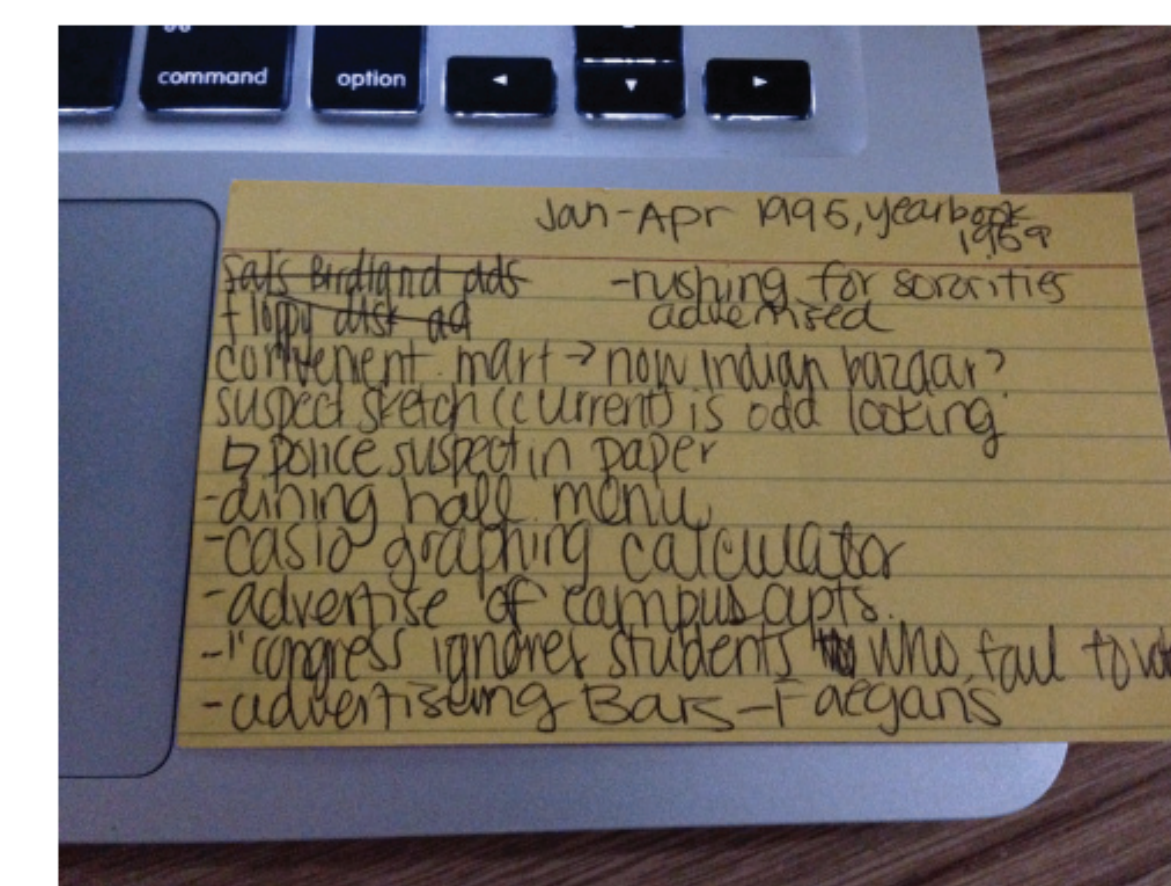 command
option
Jan-Apr 1995, yearbook
1969
Sal's Birdland ads
-rushing for sororities
floppy disk ad
advertised
convenient mart → now indian bazaar?
suspect sketch (current) is odd looking
↳ police suspect in paper
-dining hall menu
-casio graphing calculator
-advertise of campus apts.
-"congress ignores students who fail to vote
-advertising Bars-Faegans